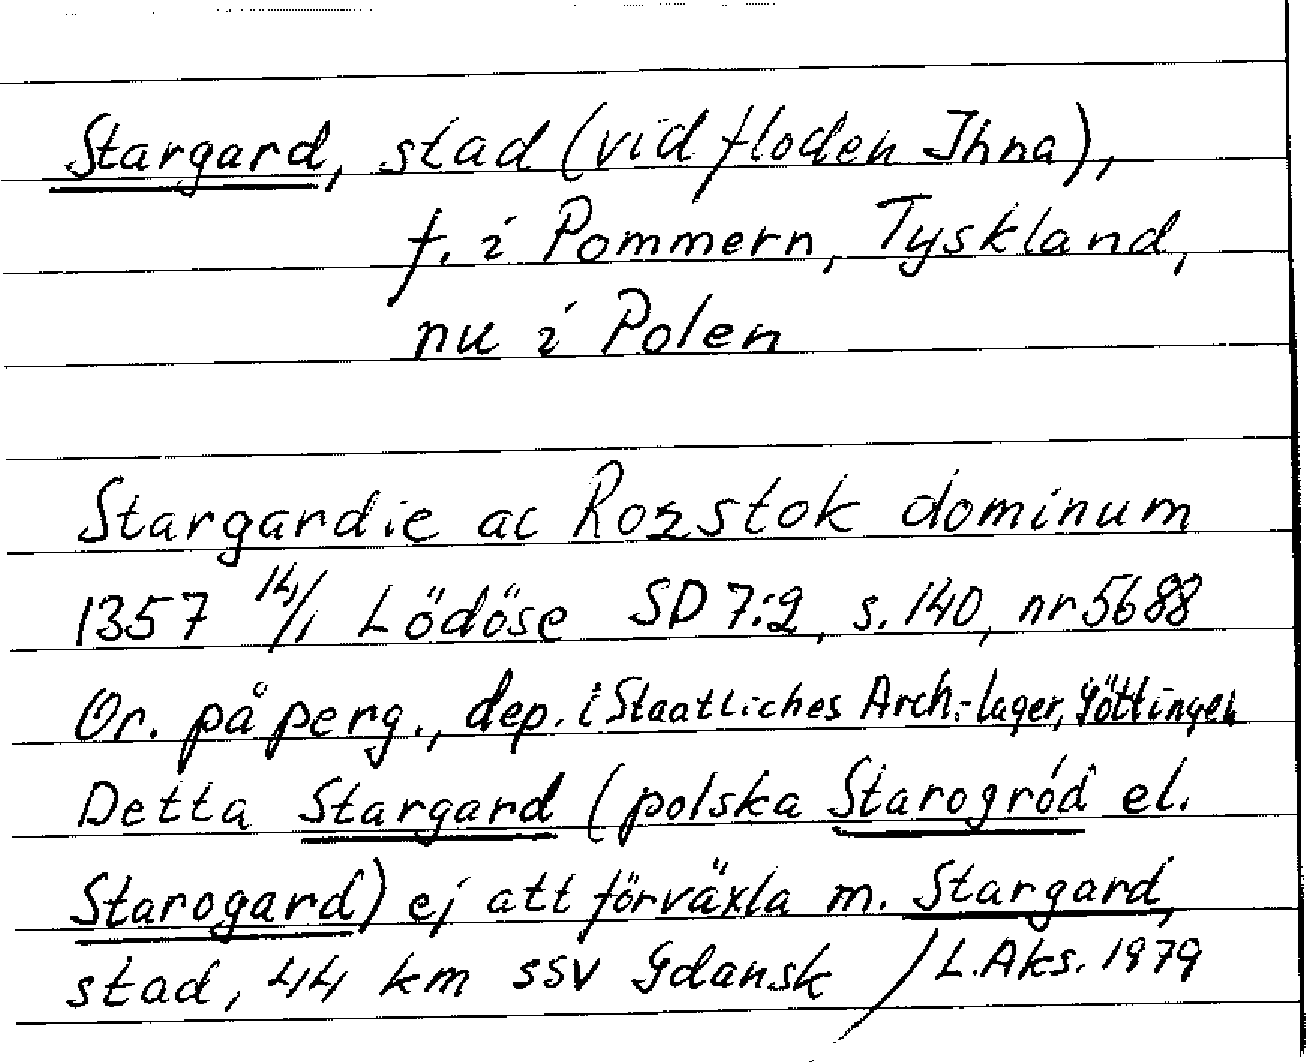 Stargard, stad (vid floden Ihna),
f. i Pommern, Tyskland,
nu i Polen
Stargardie ac Rozstok dominum
1357 14/1 Lödöse SD 7:2, s. 140, nr 5688
Or. på perg., dep. i Staatliches Arch.-lager, Göttingen
Detta Stargard (polska Starogród el.
Starogard) ej att förväxla m. Stargard,
stad, 44 km SSV Gdansk / L.Aks. 1979